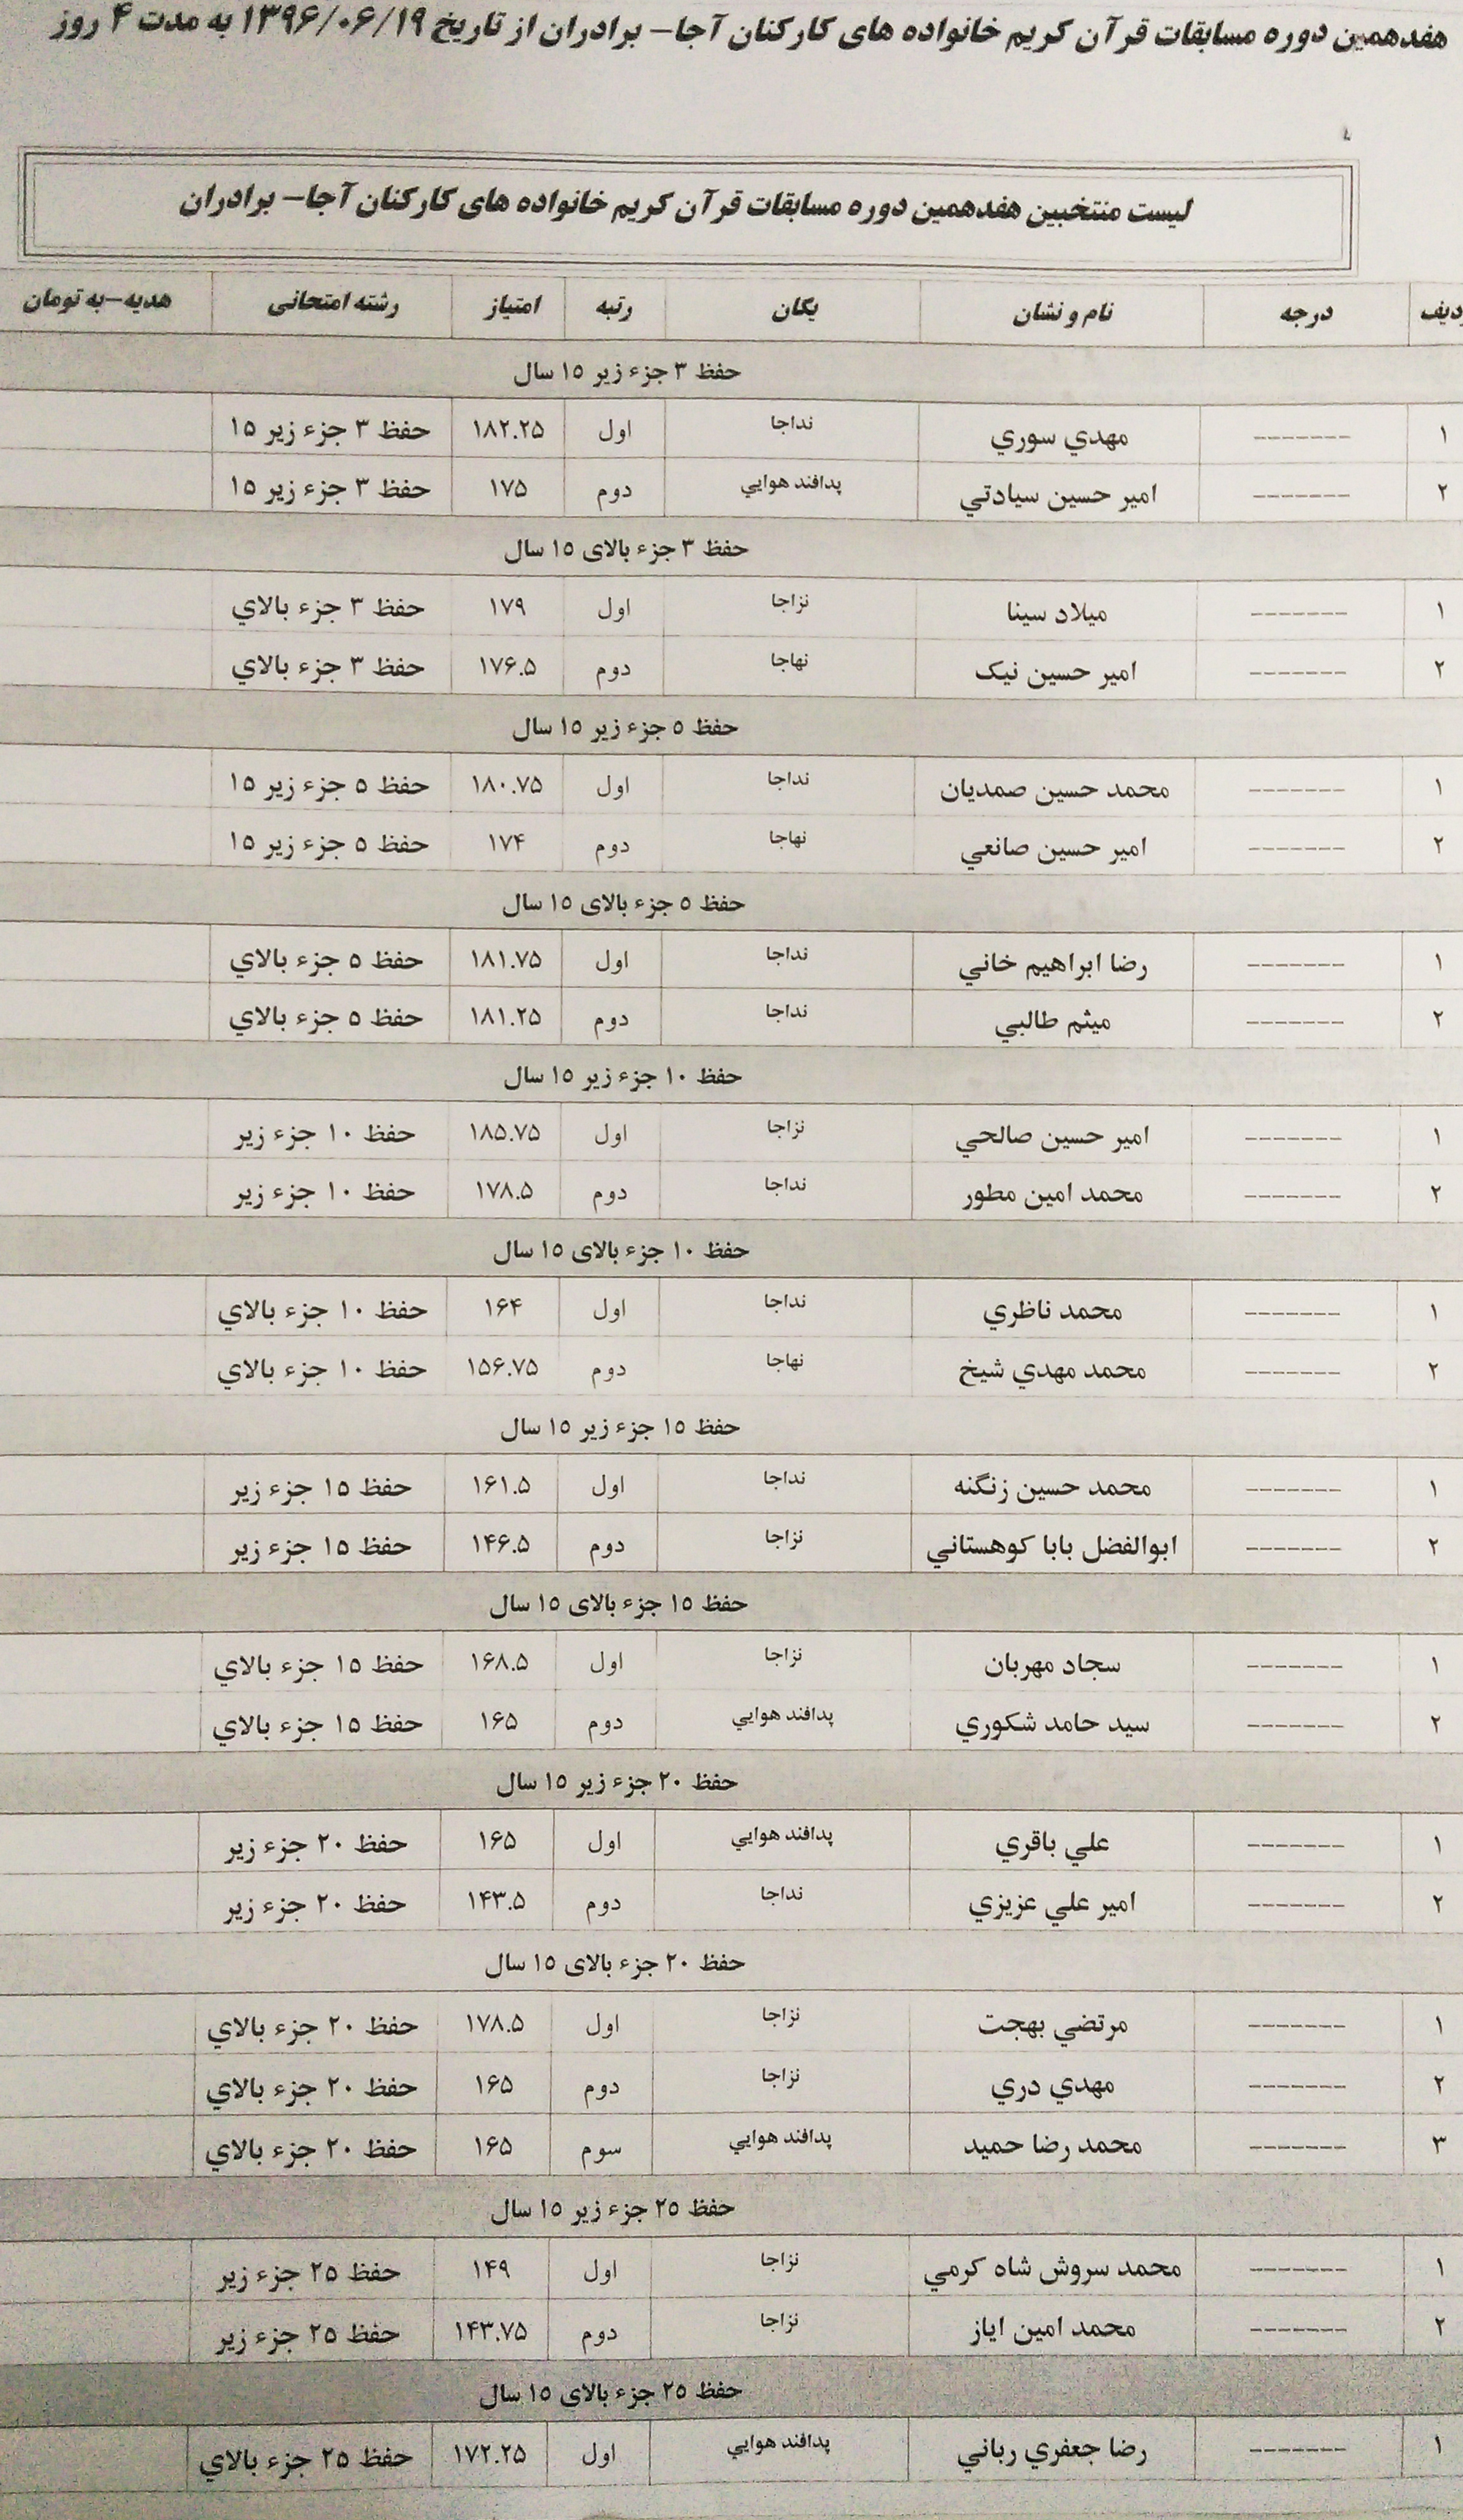 هفدهمین دوره مسابقات قرآن کریم خانواده های کارکنان آجا– برادران از تاریخ ۱۳۹۶/۰۶/۱۹ به مدت ۴ روز
لیست منتخبین هفدهمین دوره مسابقات قرآن کریم خانواده های کارکنان آجا– برادران
ردیف درجه نام و نشان یگان رتبه امتیاز رشته امتحانی هدیه–به تومان
حفظ ۳ جزء زیر ۱۵ سال
۱ ------- مهدي سوري نداجا اول ۱۸۲.۲۵ حفظ ۳ جزء زیر ۱۵
۲ ------- امیر حسین سیادتي پدافند هوایي دوم ۱۷۵ حفظ ۳ جزء زیر ۱۵
حفظ ۳ جزء بالای ۱۵ سال
۱ ------- میلاد سینا نزاجا اول ۱۷۹ حفظ ۳ جزء بالاي
۲ ------- امیر حسین نیک نهاجا دوم ۱۷۶.۵ حفظ ۳ جزء بالاي
حفظ ۵ جزء زیر ۱۵ سال
۱ ------- محمد حسین صمدیان نداجا اول ۱۸۰.۷۵ حفظ ۵ جزء زیر ۱۵
۲ ------- امیر حسین صانعي نهاجا دوم ۱۷۴ حفظ ۵ جزء زیر ۱۵
حفظ ۵ جزء بالای ۱۵ سال
۱ ------- رضا ابراهیم خاني نداجا اول ۱۸۱.۷۵ حفظ ۵ جزء بالاي
۲ ------- میثم طالبي نداجا دوم ۱۸۱.۲۵ حفظ ۵ جزء بالاي
حفظ ۱۰ جزء زیر ۱۵ سال
۱ ------- امیر حسین صالحي نزاجا اول ۱۸۵.۷۵ حفظ ۱۰ جزء زیر
۲ ------- محمد امین مطور نداجا دوم ۱۷۸.۵ حفظ ۱۰ جزء زیر
حفظ ۱۰ جزء بالای ۱۵ سال
۱ ------- محمد ناظري نداجا اول ۱۶۴ حفظ ۱۰ جزء بالاي
۲ ------- محمد مهدي شیخ نهاجا دوم ۱۵۶.۷۵ حفظ ۱۰ جزء بالاي
حفظ ۱۵ جزء زیر ۱۵ سال
۱ ------- محمد حسین زنگنه نداجا اول ۱۶۱.۵ حفظ ۱۵ جزء زیر
۲ ------- ابوالفضل بابا کوهستاني نزاجا دوم ۱۴۶.۵ حفظ ۱۵ جزء زیر
حفظ ۱۵ جزء بالای ۱۵ سال
۱ ------- سجاد مهربان نزاجا اول ۱۶۸.۵ حفظ ۱۵ جزء بالاي
۲ ------- سید حامد شکوري پدافند هوایي دوم ۱۶۵ حفظ ۱۵ جزء بالاي
حفظ ۲۰ جزء زیر ۱۵ سال
۱ ------- علي باقري پدافند هوایي اول ۱۶۵ حفظ ۲۰ جزء زیر
۲ ------- امیر علي عزیزي نداجا دوم ۱۴۳.۵ حفظ ۲۰ جزء زیر
حفظ ۲۰ جزء بالای ۱۵ سال
۱ ------- مرتضي بهجت نزاجا اول ۱۷۸.۵ حفظ ۲۰ جزء بالاي
۲ ------- مهدي دري نزاجا دوم ۱۶۵ حفظ ۲۰ جزء بالاي
۳ ------- محمد رضا حمید پدافند هوایي سوم ۱۶۵ حفظ ۲۰ جزء بالاي
حفظ ۲۵ جزء زیر ۱۵ سال
۱ ------- محمد سروش شاه کرمي نزاجا اول ۱۴۹ حفظ ۲۵ جزء زیر
۲ ------- محمد امین ایاز نزاجا دوم ۱۴۳.۷۵ حفظ ۲۵ جزء زیر
حفظ ۲۵ جزء بالای ۱۵ سال
۱ ------- رضا جعفري رباني پدافند هوایي اول ۱۷۲.۲۵ حفظ ۲۵ جزء بالاي